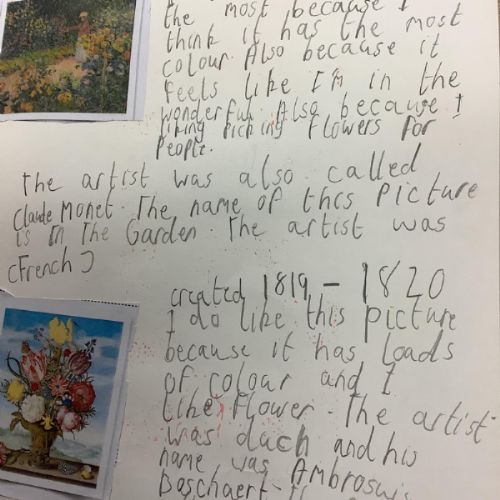 the most because I
think it has the most
colour. Also because it
feels like I'm in the
wonderful. Also because I
liking picking flowers for
people.
the artist was also called
Claude Monet. The name of this picture
is In The Garden. The artist was
(French)
created 1819 - 1820
I do like this picture
because it has loads
of colour and I
like flower. The artist
was duch and his
name was Ambroswi
Baschaert.